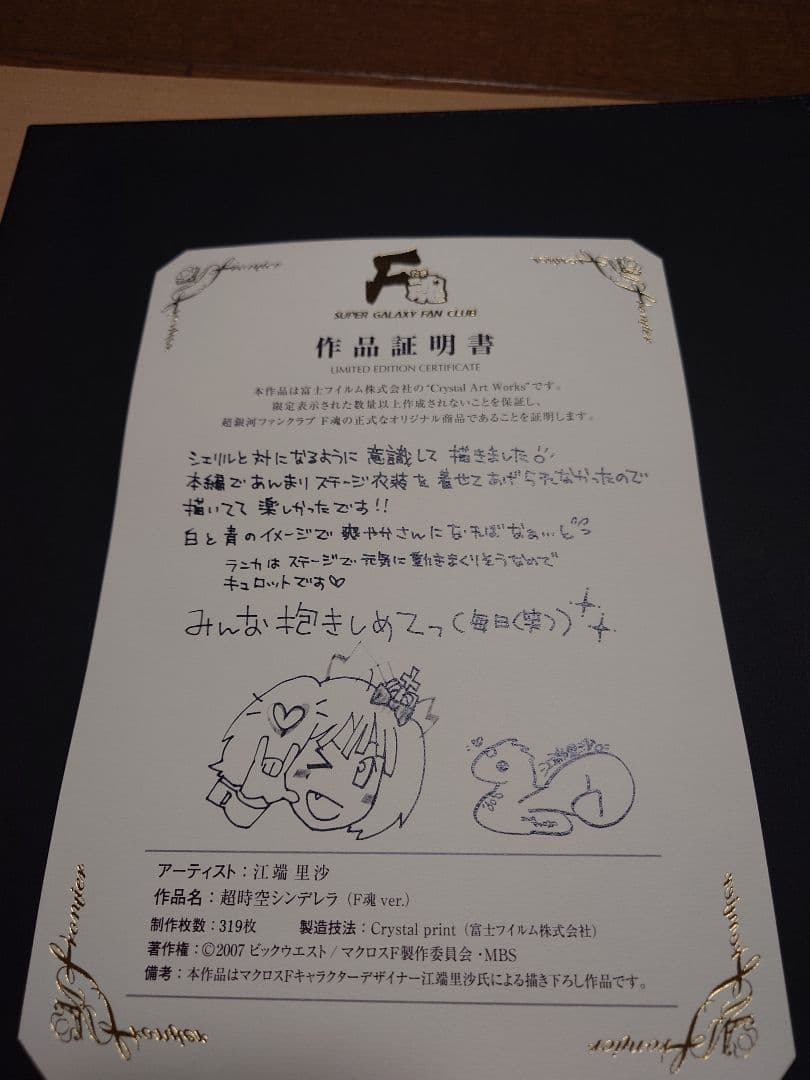 F魂
SUPER GALAXY FAN CLUB
作品証明書
LIMITED EDITION CERTIFICATE
本作品は富士フイルム株式会社の"Crystal Art Works"です。
限定表示された数量以上作成されないことを保証し、
超銀河ファンクラブ F魂の正式なオリジナル商品であることを証明します。
シェリルと対になるように意識して描きました
本編であんまりステージ衣装を着せてあげられなかったので
描いてて楽しかったです!!
白と青のイメージで爽やかさんになればなぁ…と
ランカはステージで元気に動きまくりそうなので
キュロットです♡
みんな抱きしめてっ(毎日(笑))
アーティスト：江端 里沙
作品名：超時空シンデレラ（F魂 ver.）
制作枚数：319枚　製造技法：Crystal print（富士フイルム株式会社）
著作権：©2007 ビックウエスト / マクロスF製作委員会・MBS
備考：本作品はマクロスFキャラクターデザイナー江端里沙氏による描き下ろし作品です。
frontier
frontier
frontier
frontier
frontier
frontier
frontier
frontier